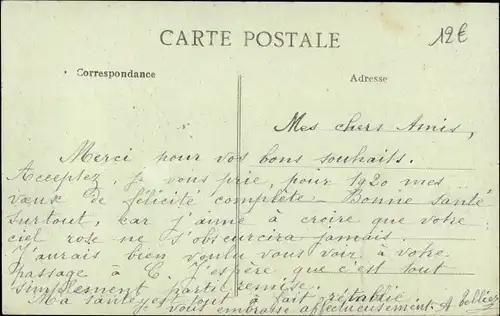 CARTE POSTALE
12€
Correspondance
Adresse
Mes chers Amis,
Merci pour vos bons souhaits.
Acceptez, je vous prie, pour 1920 mes
vœux de félicité complète - Bonne santé
surtout, car j'aime à croire que votre
ciel rose ne s'obscurcira jamais.
J'aurais bien voulu vous voir à votre
passage à C. J'espère que c'est tout
simplement partie remise.
Ma santé est tout à fait rétablie
vous embrasse affectueusement. A